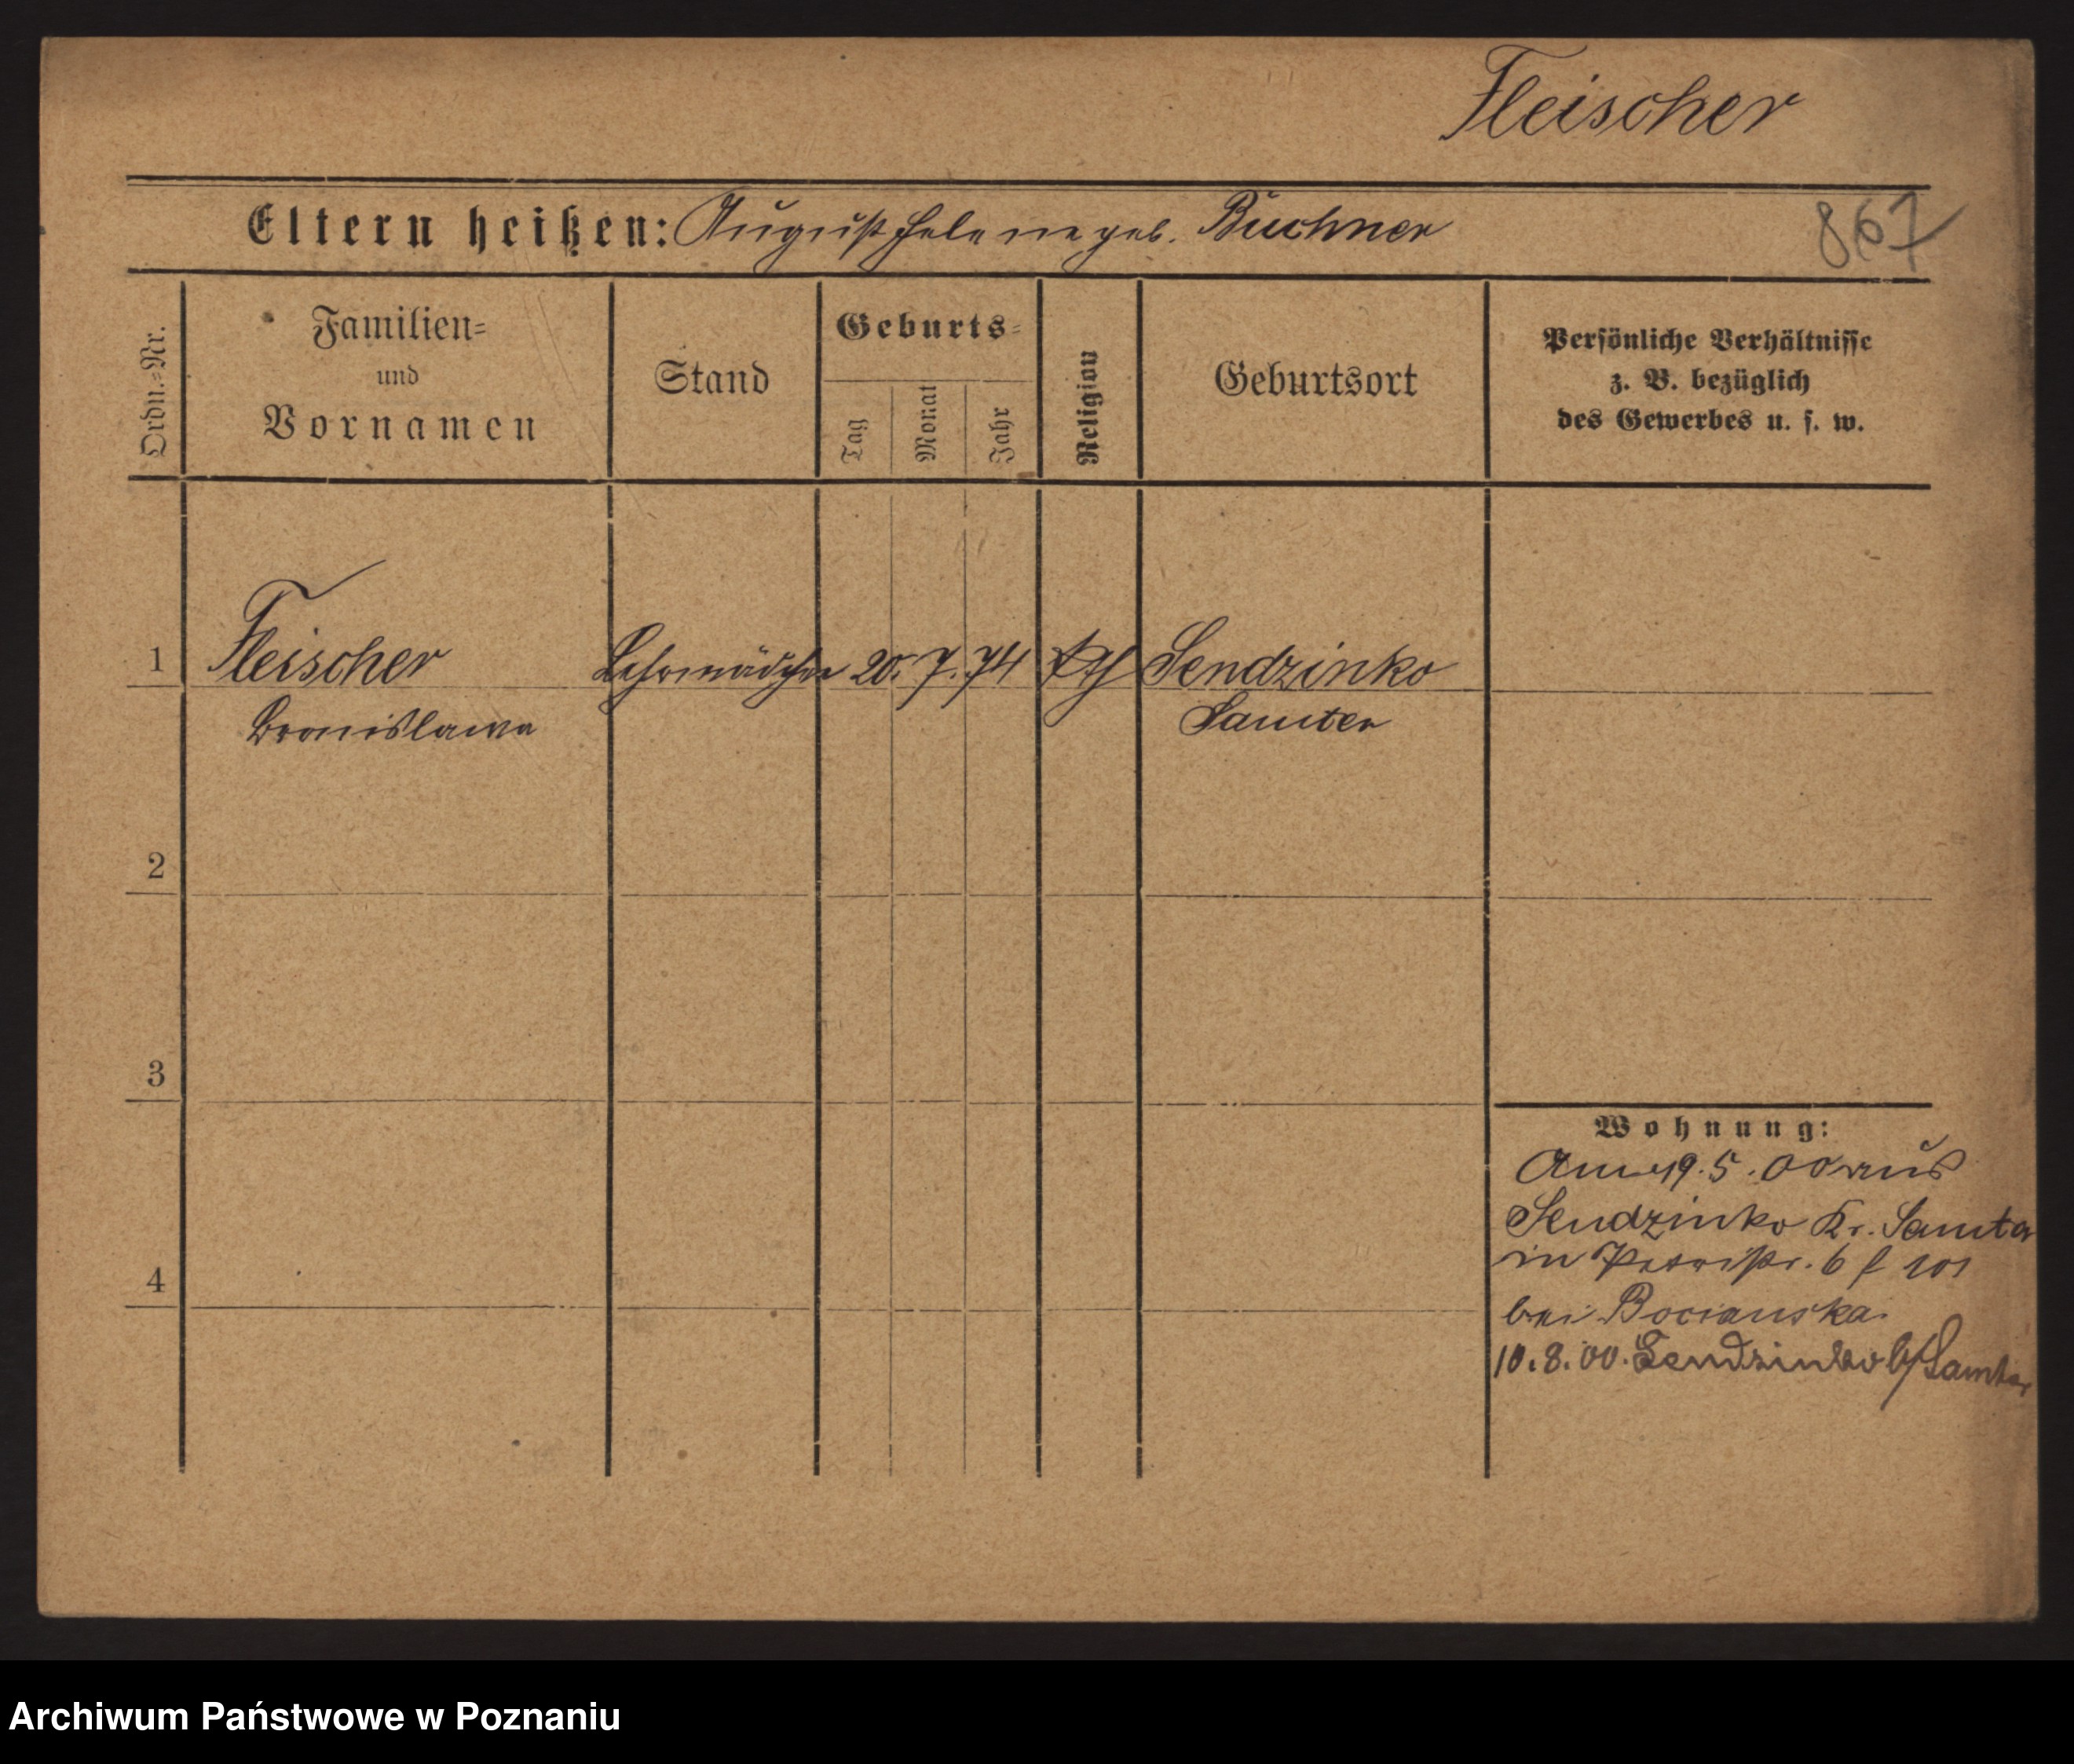 Fleischer
Eltern heißen: August Helene geb. Buchner
867
Ordn.=Nr.
Familien=
und
Vornamen
Stand
Geburts=
Tag
Monat
Jahr
Religion
Geburtsort
Persönliche Verhältnisse
z. B. bezüglich
des Gewerbes u. s. w.
1 Fleischer Lehrmädchen 20. 7. 74 kth Sendzinko
Bronislawa Samter
2
3
4
Wohnung:
Am 19. 5. 00 aus
Sendzinko Kr. Samter
in Petristr. 6
bei Bocianska
10. 8. 00. Sendzinko b/Samter
Archiwum Państwowe w Poznaniu